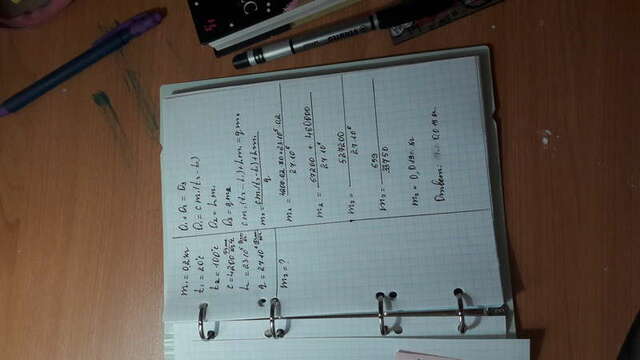 m₁ = 0,2 кг
t₁ = 20°C
t₂ = 100°C
c = 4200
L = 2,3·10⁶
q = 27·10⁶
m₂ = ?
Q₁ + Q₂ = Q₃
Q₁ = cm₁(t₂ - t₁)
Q₂ = Lm₁
Q₃ = qm₂
cm₁(t₂ - t₁) + Lm₁ = qm₂
m₂ = cm₁(t₂ - t₁) + Lm₁ / q
m₂ = 4200·0,2·80 + 2,3·10⁶·0,2 / 27·10⁶
m₂ = 67200 + 460000 / 27·10⁶
m₂ = 527200 / 27·10⁶
m₂ = 659 / 33750
m₂ = 0,019
Ответ: 0,019 кг